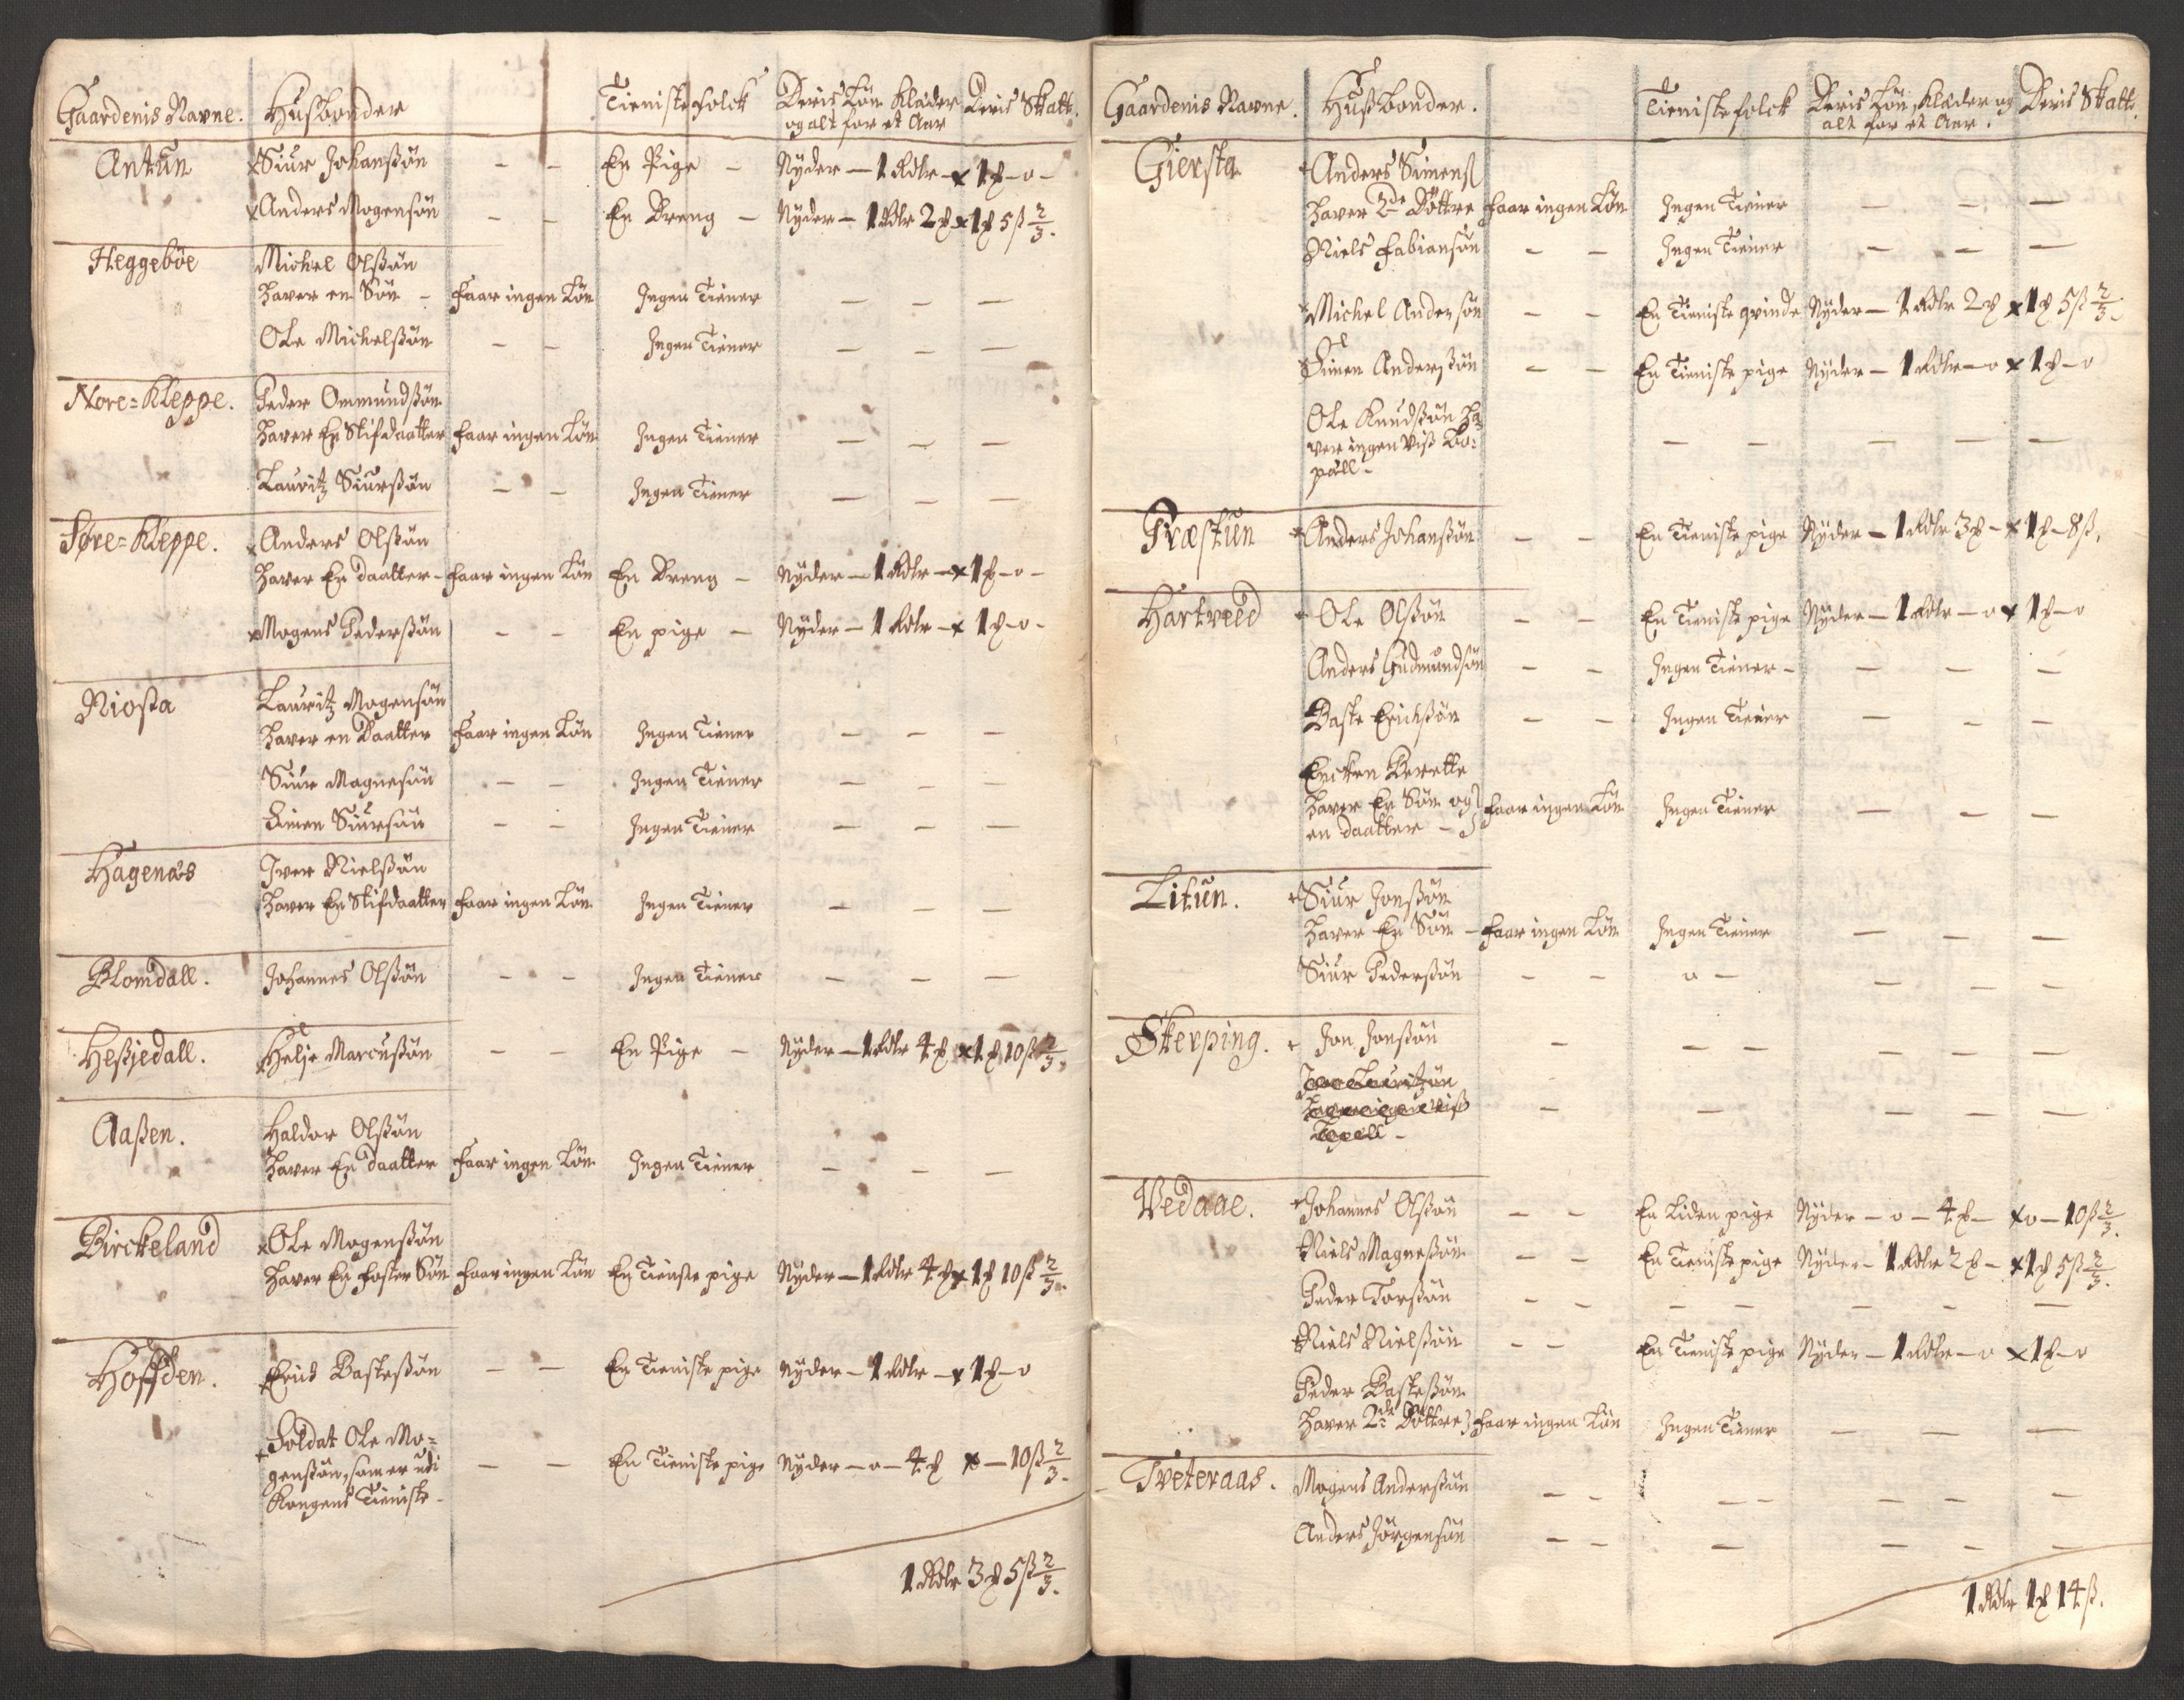 Gaardenis Navne. Husbonder Tieniste folck Deris Løn Klæder Deris Skatt.
og alt for et Aar
Antun Siur Johanßøn – – En Pige – Nyder – 1 Rdlr – x 1 – o –
Anders Mogensøn – – En Dreng – Nyder – 1 Rdlr 2 x 1 5 ß 2/3.
Heggebøe Michel Olßøn
haver en Søn – faar ingen Løn Ingen Tiener – – –
Ole Michelßøn – – Ingen Tiener – – –
Nore=Kleppe. Peder Ommundßøn
haver En Stifdaatter faar ingen Løn Ingen Tiener – – –
Lauritz Siurßøn – – Ingen Tiener – – –
Søre=Kleppe. x Anders Olßøn
haver En daatter – faar ingen Løn En Dreng – Nyder – 1 Rdlr – x 1 – o –
x Mogens Pederßøn – – En pige – Nyder – 1 Rdlr – x 1 – o –
Niosta Lauritz Mogensøn
haver en Daatter faar ingen Løn Ingen Tiener – – –
Siur Magnesøn – – Ingen Tiener – – –
Simen Siursøn – – Ingen Tiener – – –
Hagenæs Iver Nielßøn
haver En Stifdaatter faar ingen Løn Ingen Tiener – – –
Blomdall. Johannes Olßøn – – Ingen Tiener – – –
Heßjedall. x Helje Marcußøn – – En Pige – Nyder – 1 Rdlr 4 x 1 10 ß 2/3.
Aaßen. Haldor Olßøn
haver En daatter faar ingen Løn Ingen Tiener – – –
Birckeland x Ole Mogenßøn
haver En foster Søn faar ingen Løn En Tieniste pige Nyder – 1 Rdlr 4 x 1 10 ß 2/3.
Hoffden. x Erich Basteßøn – – En Tieniste pige Nyder – 1 Rdlr – x 1 – o
Soldat Ole Mo=
genßøn, som er udi – – En Tieniste pige Nyder – o – 4 x – 10 ß 2/3.
Kongens Tieniste –
1 Rdlr 3 5 ß 2/3.
Gaardenis Navne. Hußbonder. Tieniste folck Deris Løn, Klæder og Deris Skatt.
alt for et Aar.
Giersta Anders Simenß
haver 2de Døttre faar ingen Løn Ingen Tiener – – –
Niels Fabiansøn – – Ingen Tiener – – –
Michel Andersøn – – En Tieniste qvinde Nyder – 1 Rdlr 2 x 1 5 ß 2/3.
Simen Anderßøn – – En Tieniste pige Nyder – 1 Rdlr – o x 1 – o
Ole Knudßøn ha=
ver ingen viß Bo= – – – – –
pæll –
Præstun x Anders Johanßøn – – En Tieniste pige Nyder – 1 Rdlr 3 – x 1 – 8 ß.
Hartveed Ole Olßøn – – En Tieniste pige Nyder – 1 Rdlr – o x 1 – o
Anders Gudmundsøn – – Ingen Tiener – – – –
Baste Erichßøn – – Ingen Tiener – – –
Encken Berette
haver En Søn og faar ingen Løn Ingen Tiener – – –
en daatter –
Litun. Siur Jonßøn
haver En Søn – faar ingen Løn Ingen Tiener – – –
Siur Pederßøn – – o – – – –
Skerping. Jon Jonßøn – – – – – –
Lauritzøn
haver ingen viß – – – – –
Bopæll –
Vedaae. Johannes Olßøn – – En Liden pige Nyder – o – 4 – x o – 10 ß 2/3.
Niels Magneßøn – – En Tieniste pige Nyder – 1 Rdlr 2 – x 1 5 ß 2/3.
Peder Torßøn – – – – – – –
Niels Nielßøn – – En Tieniste pige Nyder – 1 Rdlr – o x 1 – o
Peder Basteßøn
haver 2de Døttre faar ingen Løn Ingen Tiener – – –
Tveteraas. Mogens Anderßøn – – – – – – –
Anders Jørgensøn – – – – – –
1 Rdlr 1 14 ß.